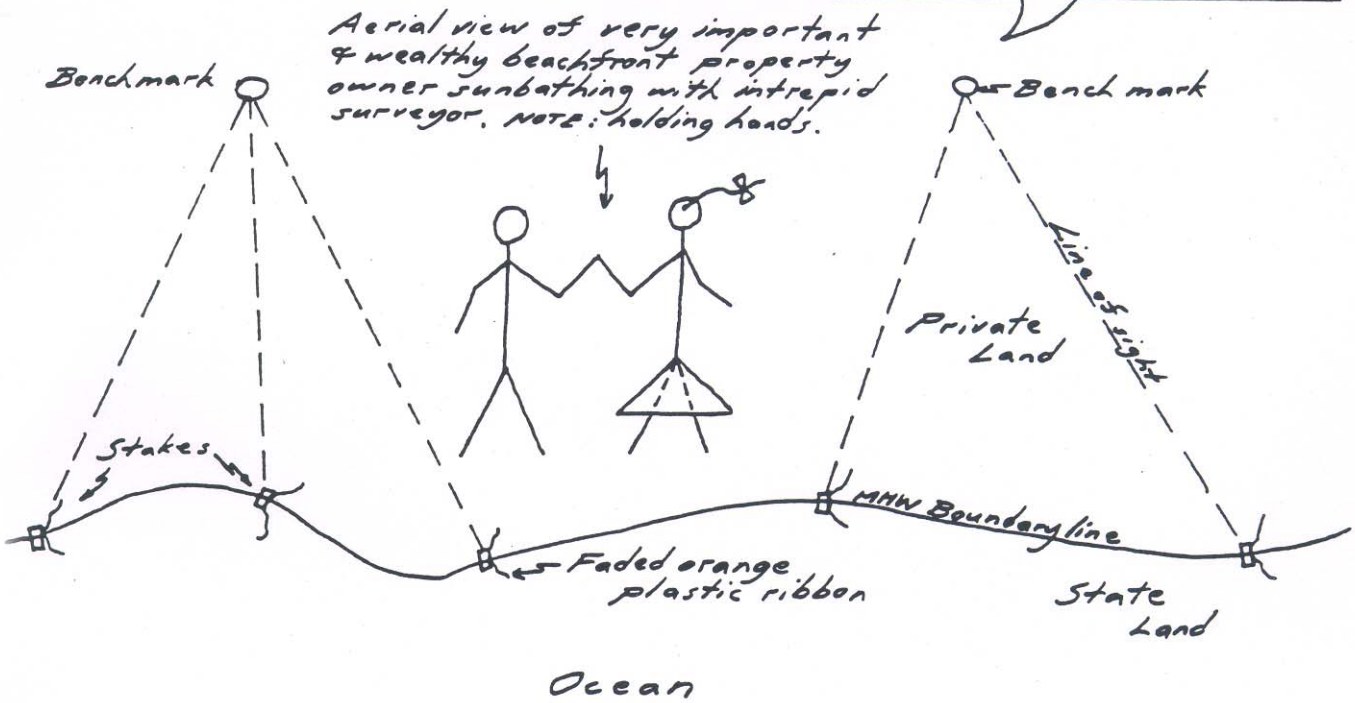 Aerial view of very important
& wealthy beachfront property
owner sunbathing with intrepid
surveyor. NOTE: holding hands.
Benchmark
Bench mark
Line of sight
Private
Land
Stakes
MHW Boundary line
Faded orange
plastic ribbon
State
Land
Ocean